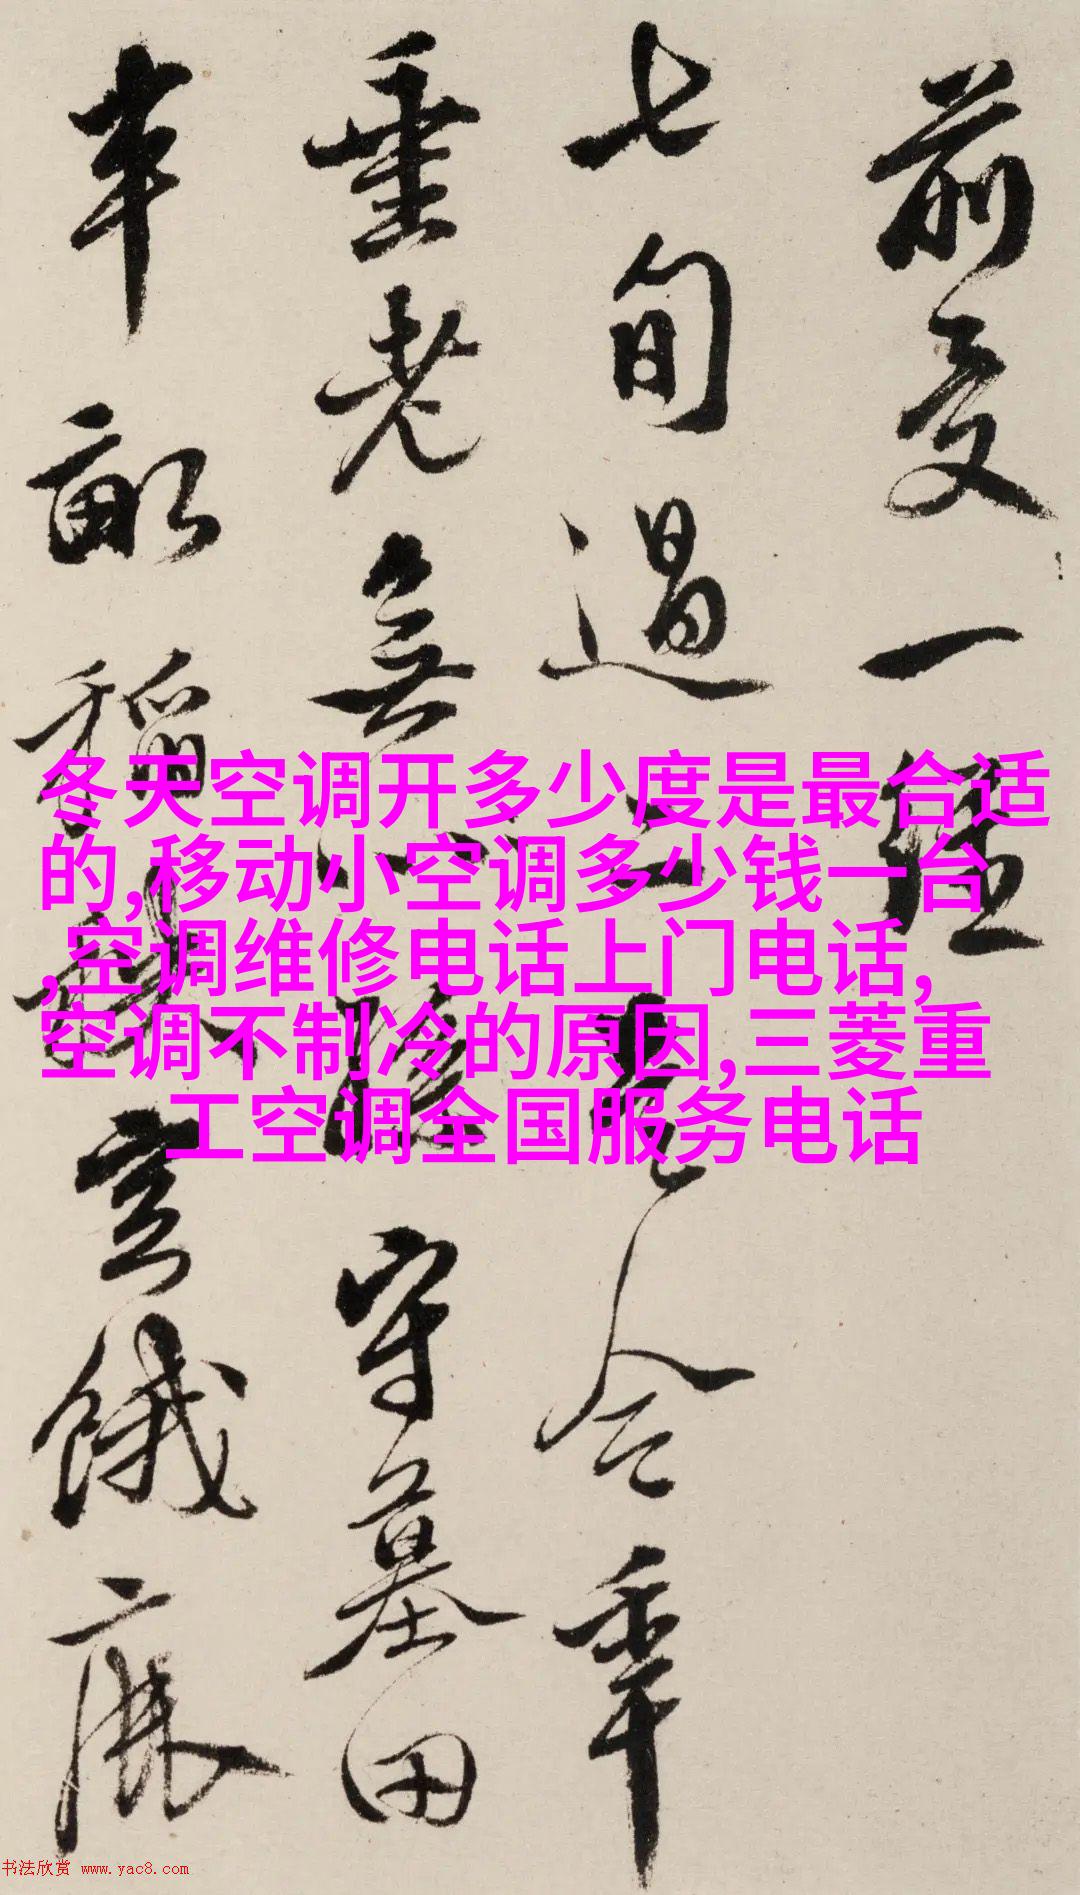 前受一
七旬過二是今年
垂老無心隱守墓田
半畝稻
冬天空调开多少度是最合适
的,移动小空调多少钱一台
,空调维修电话上门电话,
空调不制冷的原因,三菱重
工空调全国服务电话
书法欣赏 www.yac8.com